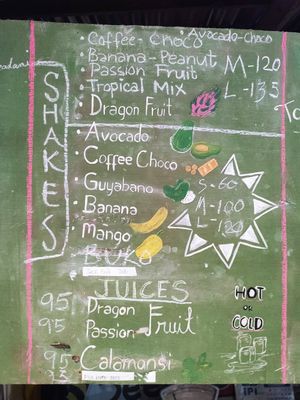 Avocado-Choco
Coffee-Choco
Banana-Peanut M-120
Passion Fruit
Tropical Mix L-135
Dragon Fruit
SHAKES
Avocado
Coffee Choco
Guyabano S-60
Banana M-100
Mango L-120
BUKO
JUICES
95 Dragon Fruit
95 Passion
HOT
or
COLD
95 Calamansi